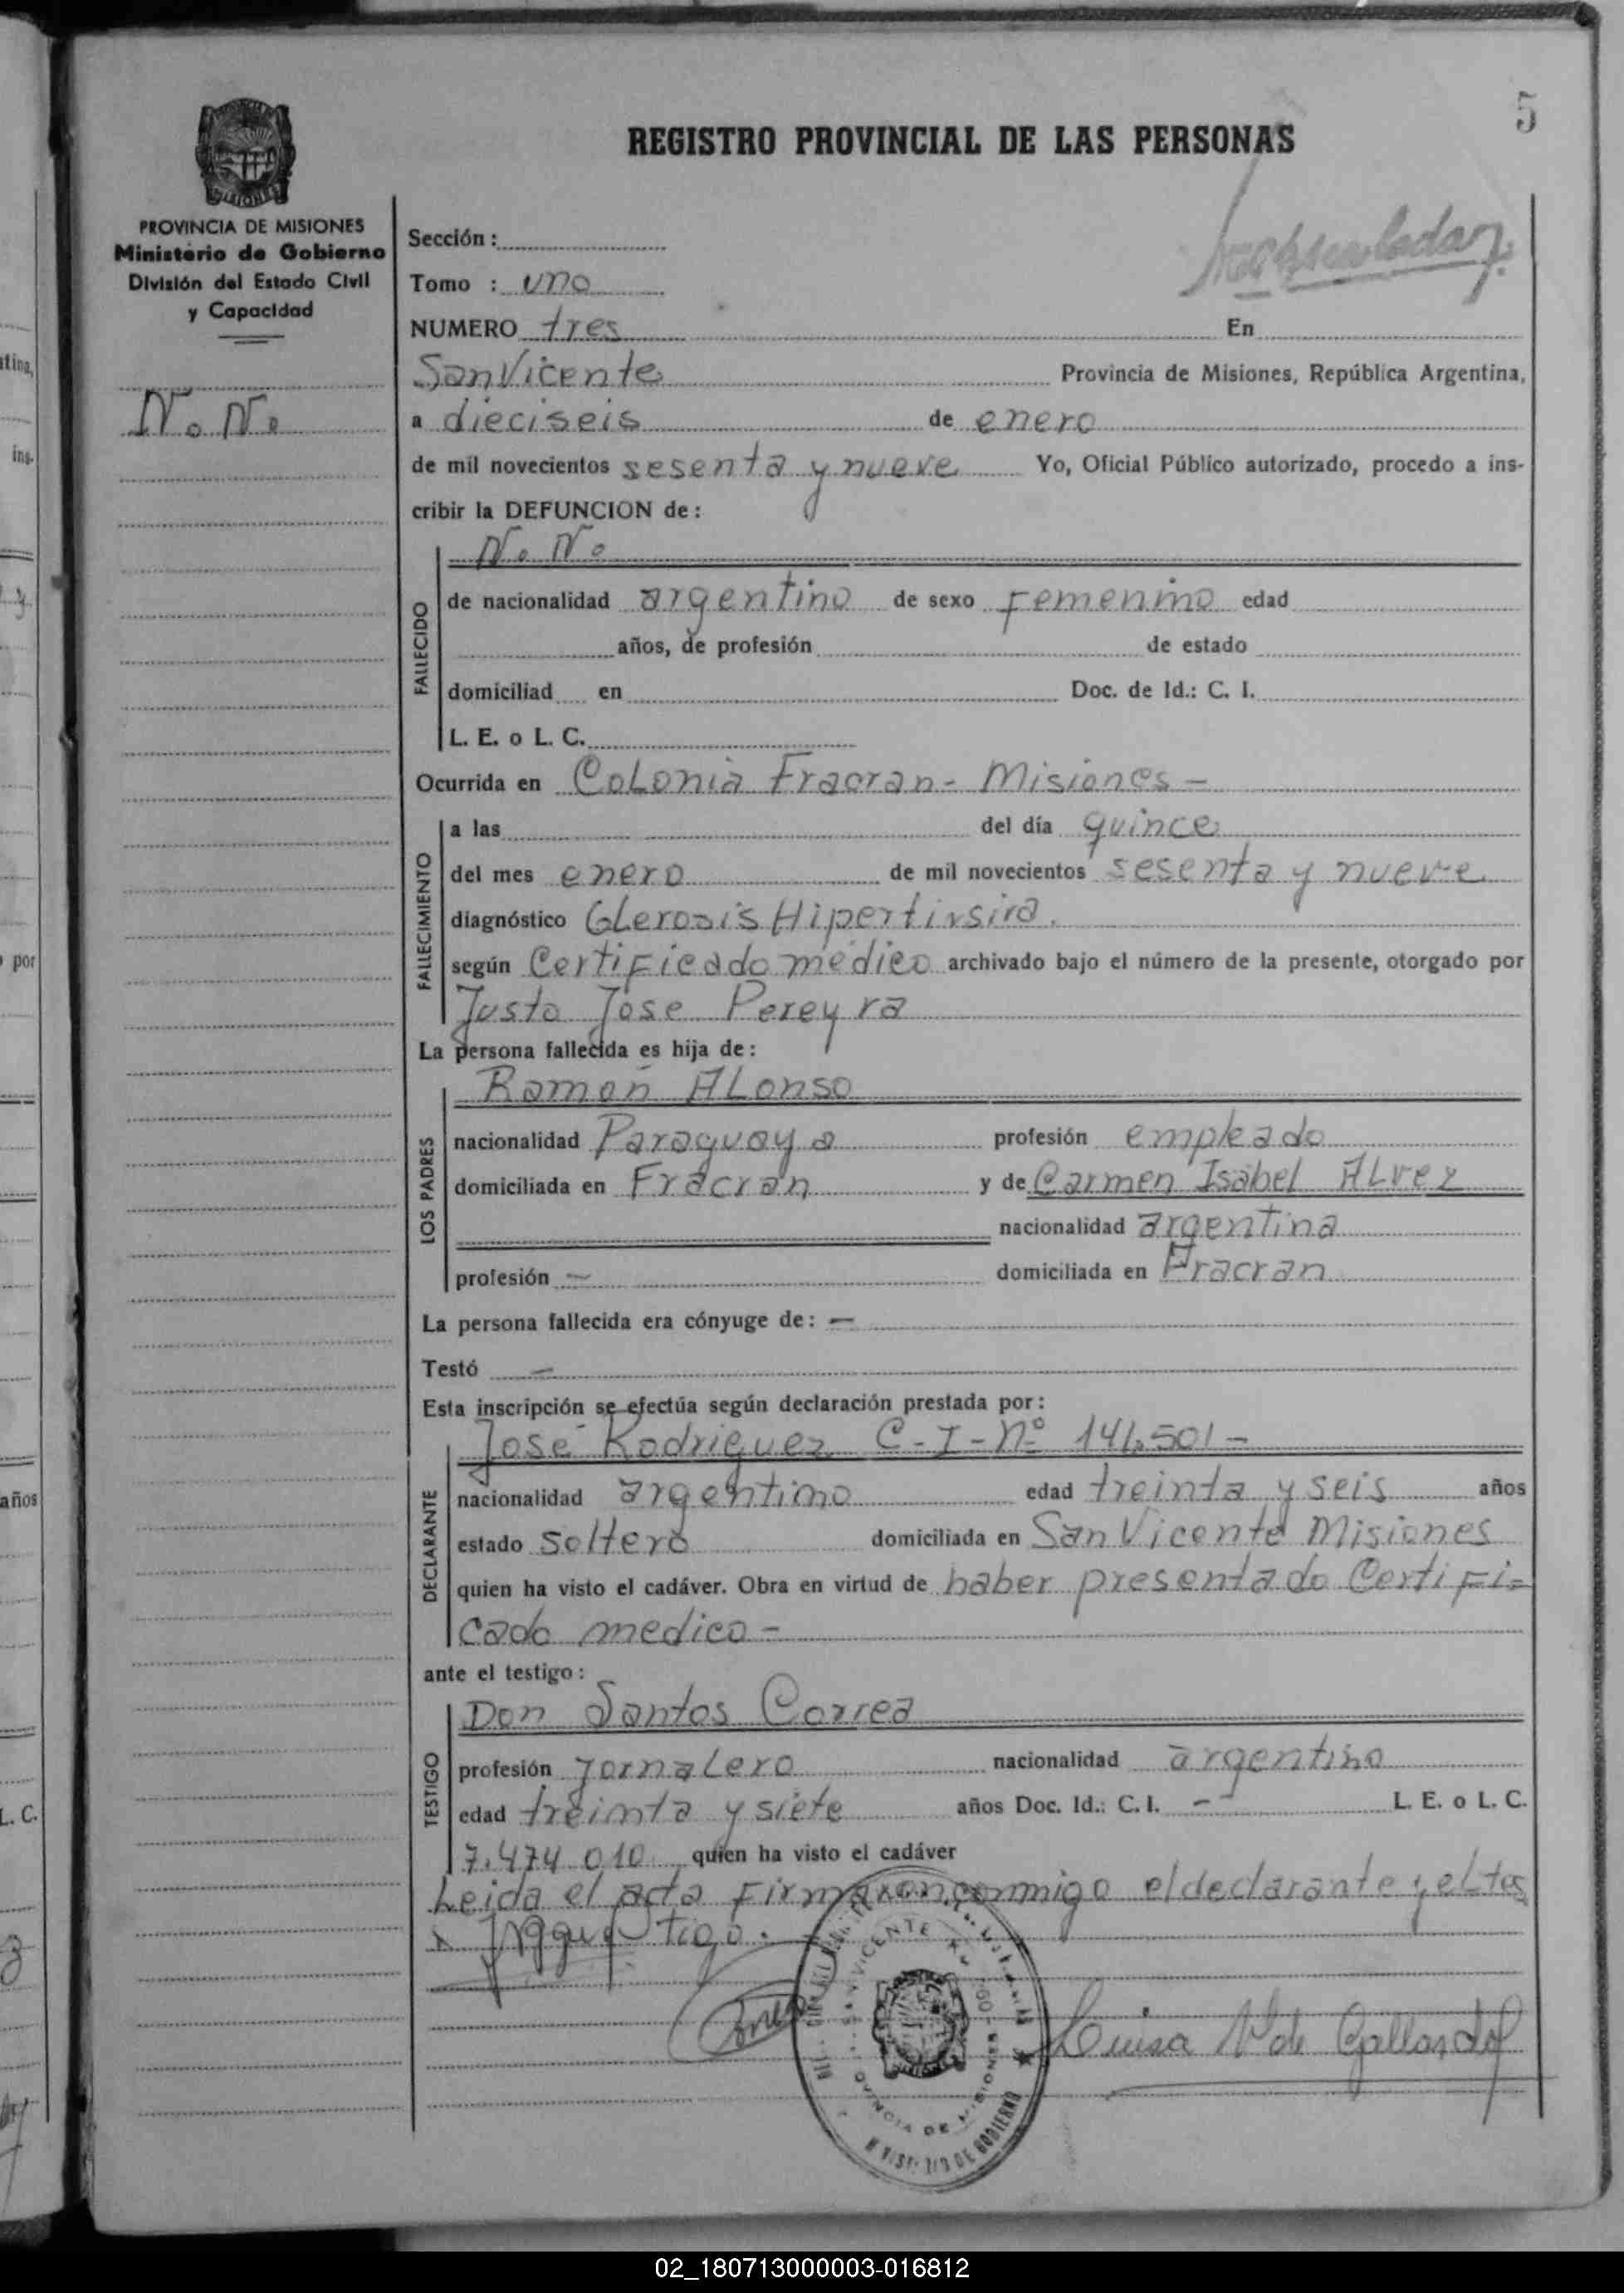 5
REGISTRO PROVINCIAL DE LAS PERSONAS
PROVINCIA DE MISIONES
Ministerio de Gobierno
División del Estado Civil
y Capacidad
N. N.
Sección :
Tomo : uno
NUMERO tres En
San Vicente Provincia de Misiones, República Argentina,
a dieciseis de enero
de mil novecientos sesenta y nueve Yo, Oficial Público autorizado, procedo a ins-
cribir la DEFUNCION de :
N. N.
FALLECIDO
de nacionalidad argentino de sexo Femenino edad
años, de profesión de estado
domiciliad en Doc. de Id.: C. I.
L. E. o L. C.
Ocurrida en Colonia Fracran - Misiones -
FALLECIMIENTO
a las del día quince
del mes enero de mil novecientos sesenta y nueve
diagnóstico
según Certificado médico archivado bajo el número de la presente, otorgado por
Justo Jose Pereyra
La persona fallecida es hija de :
LOS PADRES
Ramon Alonso
nacionalidad Paraguaya profesión empleado
domiciliada en Fracran y de Carmen Isabel Alvez
nacionalidad argentina
profesión — domiciliada en Fracran
La persona fallecida era cónyuge de : —
Testó —
Esta inscripción se efectúa según declaración prestada por :
DECLARANTE
José Rodriguez C-I-Nº
nacionalidad argentino edad treinta y seis años
estado soltero domiciliada en San Vicente Misiones
quien ha visto el cadáver. Obra en virtud de haber presentado Certifi=
cado medico -
ante el testigo :
TESTIGO
Don Santos Correa
profesión Jornalero nacionalidad argentino
edad treinta y siete años Doc. Id.: C. I. -- L. E. o L. C.
7.474.010 quien ha visto el cadáver
Leida el acta Firmaron conmigo el declarante y el tes
tigo.
SAN VICENTE
PROVINCIA DE MISIONES
MINISTERIO DE GOBIERNO
Luisa V de Gallardo
02_180713000003-016812